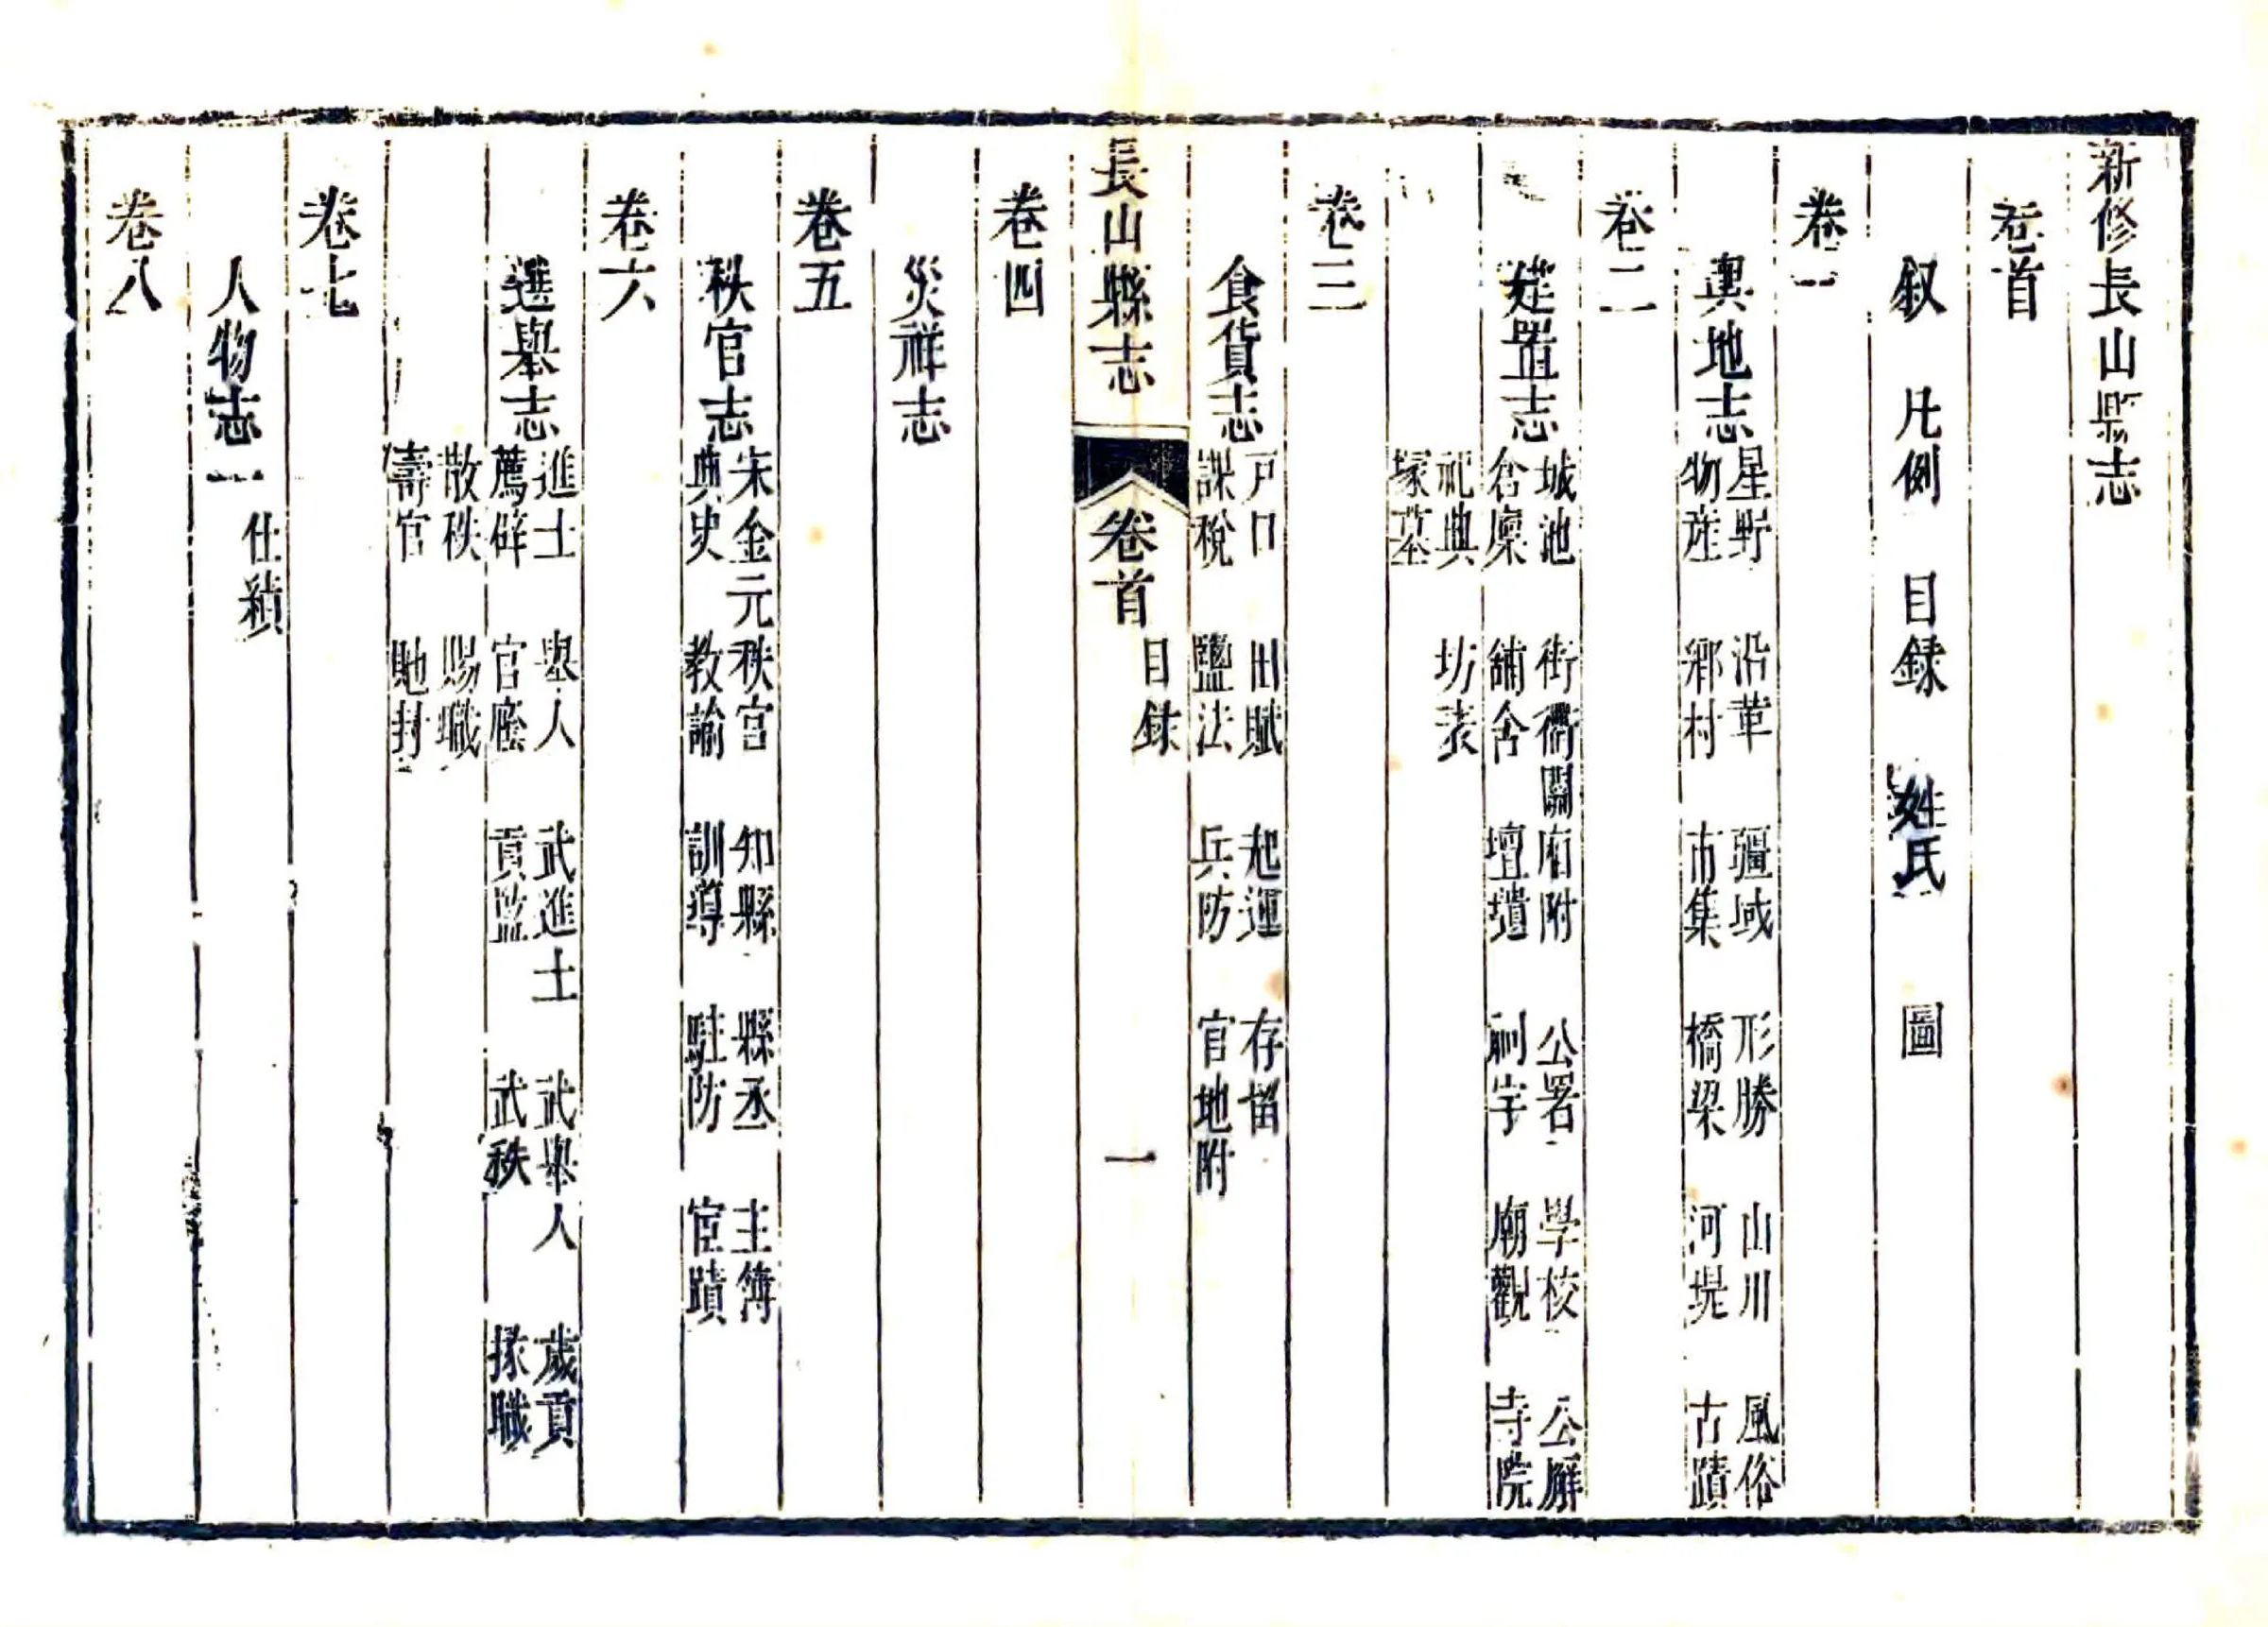 新修長山縣志
卷首
叙　凡例　目録　姓氏　圖
卷一
輿地志　星野　沿革　疆域　形勝　山川　風俗
物産　鄉村　市集　橋梁　河堤　古蹟
卷二
建置志　城池　街衢關廂附　公署　學校　公廨
倉廩　舖舍　壇壝　祠宇　廟觀　寺院
祀典　坊表
塚墓
卷三
食貨志　戸口　田賦　起運　存留
課稅　鹽法　兵防　官地附
長山縣志　卷首　目録　一
卷四
災祥志
卷五
秩官志　宋金元秩官　知縣　縣丞　主簿
典史　教諭　訓導　駐防　宦蹟
卷六
選舉志　進士　舉人　武進士　武舉人　歲貢
薦辟　官廕　貢監　武秩　掾職
散秩　賜職
壽官　貤封
卷七
人物志一　仕績
卷八